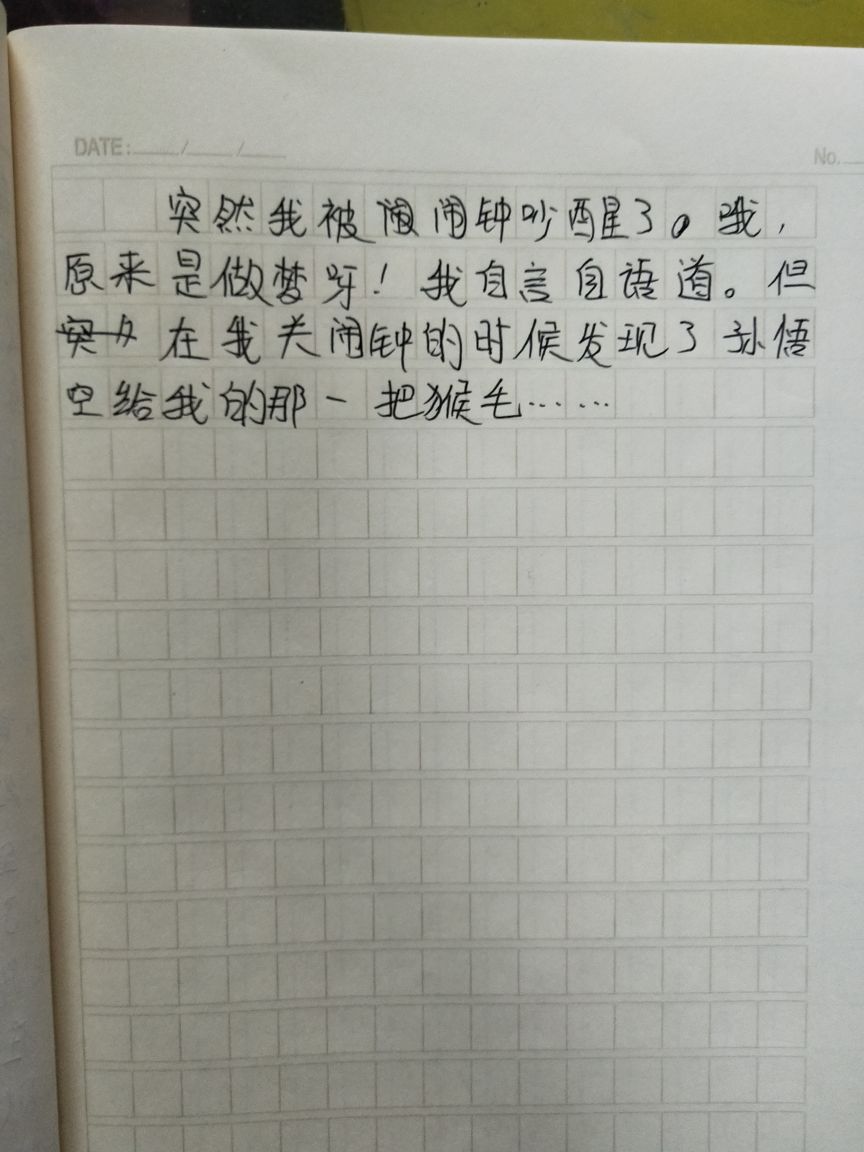 DATE: / /
No.
突然我被闹闹钟吵醒了。哦，
原来是做梦呀！我自言自语道。但
在我关闹钟的时候发现了孙悟
空给我的那一把猴毛……